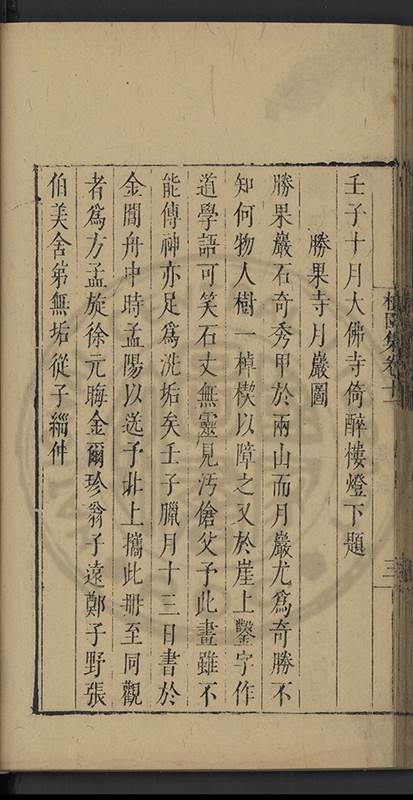 壬子十月大佛寺倚醉樓燈下題
勝果寺月巖圖
勝果巖石奇秀甲於兩山而月巖尤為奇勝不
知何物人樹一棹楔以障之又於崖上鑿字作
道學語可笑石丈無靈見汚傖父予此畫雖不
能傳神亦足為洗垢矣壬子臘月十三日書於
金閶舟中時孟陽以送予北上攜此冊至同觀
者為方孟旋徐元晦金爾珍翁子遠鄭子野張
伯美舍弟無垢從子緇仲
卷十二
三